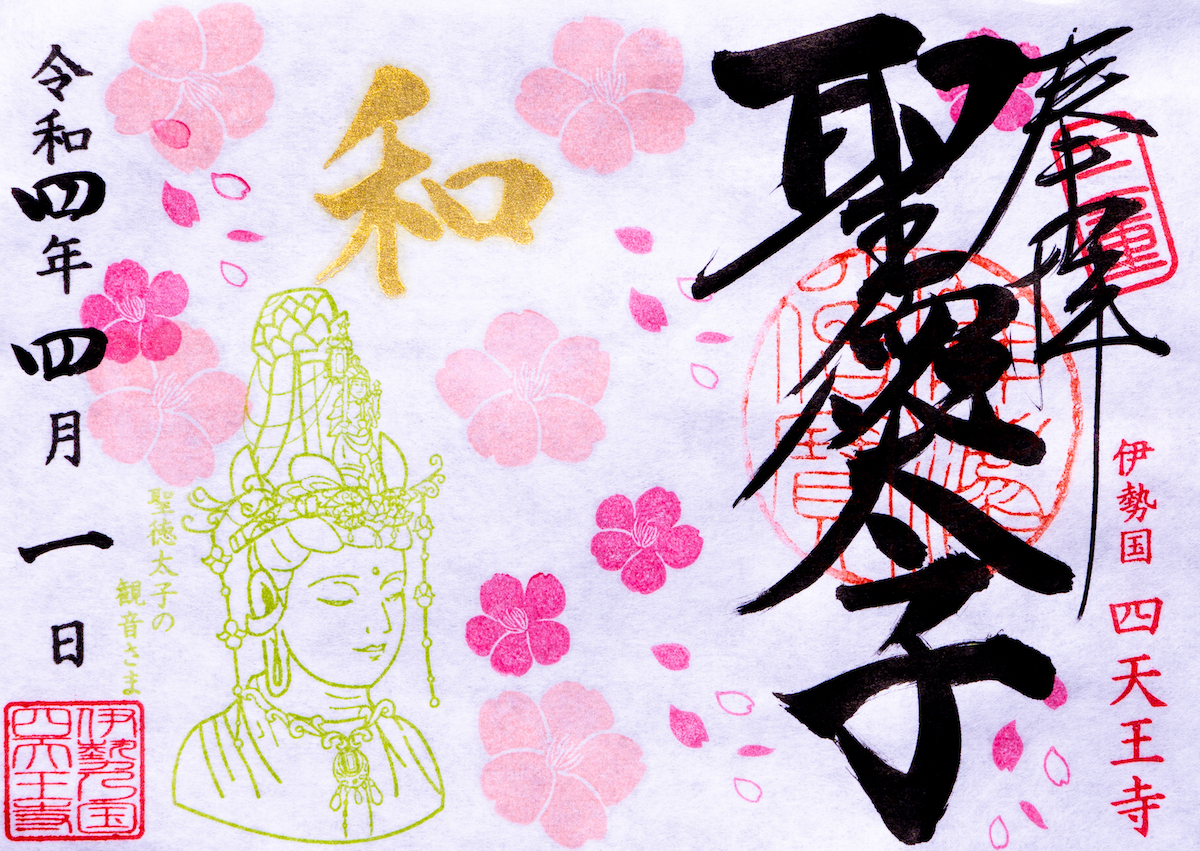 奉拝
三重
聖徳太子
伊勢国 四天王寺
和
聖徳太子の
観音さま
令和四年 四月 一日
伊勢国
四天王寺